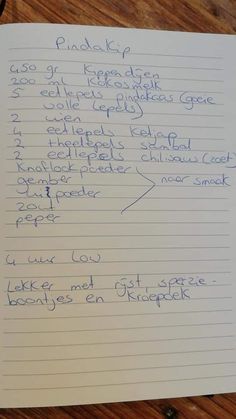 Pindakip
450 gr Kippendijen
200 ml Kokosmelk
5 eetlepels pindakaas (goeie
volle lepels)
2 uien
4 eetlepels Ketjap
2 theelepels sambal
2 eetlepels chilisaus (zoet)
Knoflookpoeder
gember
uipoeder
zout
peper
naar smaak
4 uur low
Lekker met rijst, sperzie-
boontjes en Kroepoek